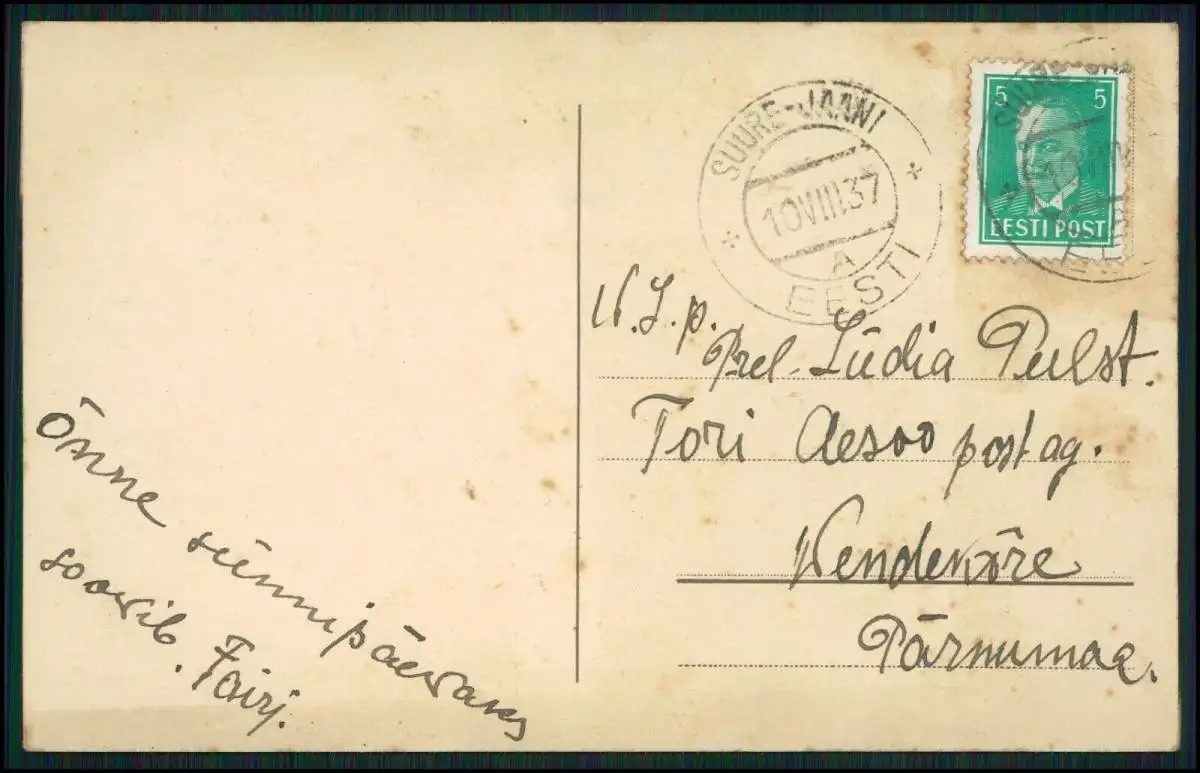 SUURE-JAANI
10 VIII 37
A
EESTI
5 5
EESTI POST
Prel. Lüdia Pulst.
Tori Aesoo postag.
Wendenõre
Pärnumaa.
Õnne
sünnipäevaks
soovib.